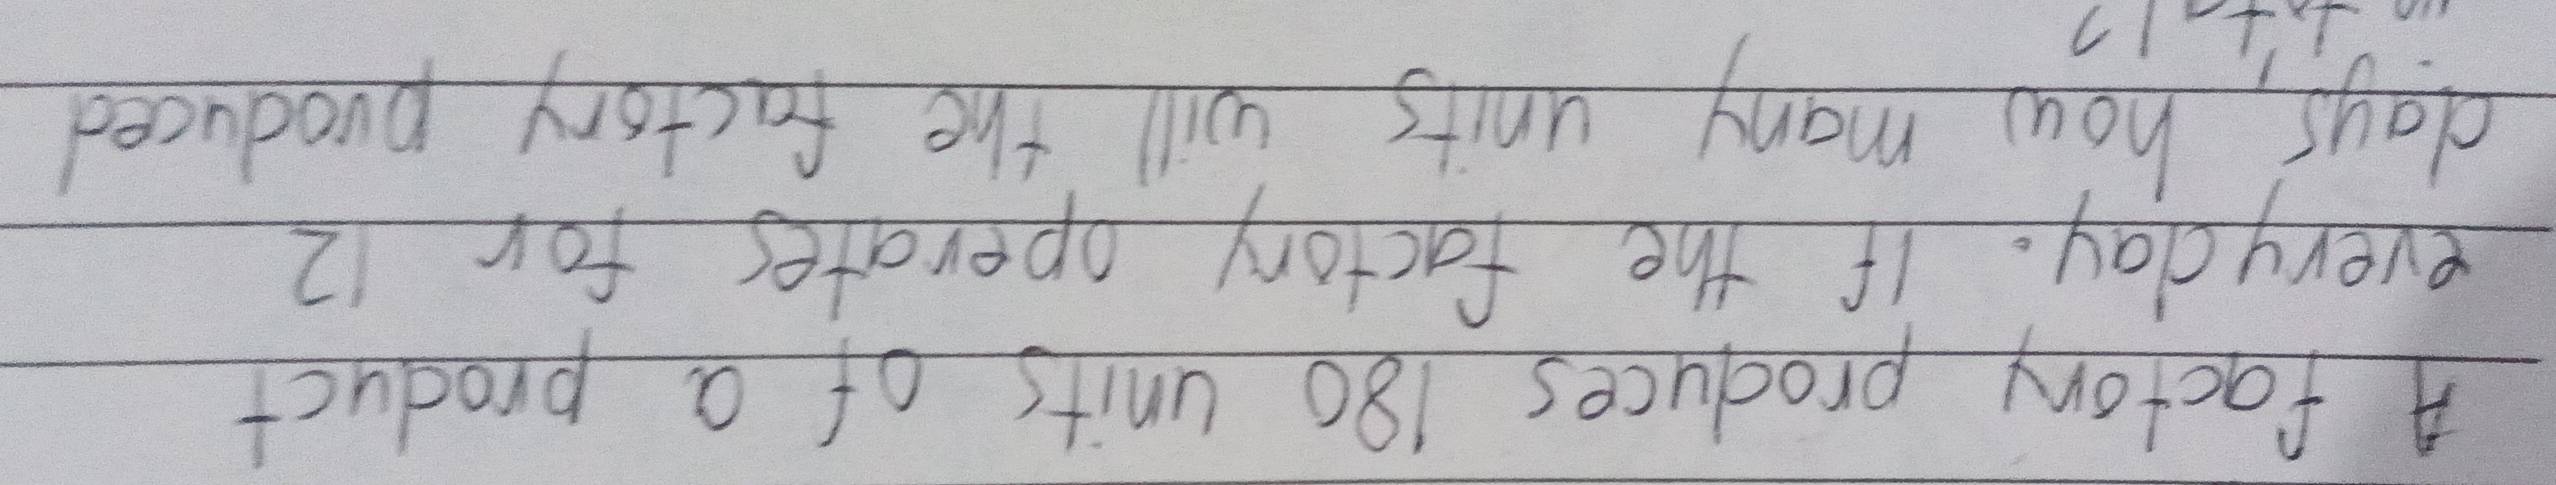 A factory produces 180 units of a product
everyday. If the factory operates for 12
days, how many units will the factory produced
in total?